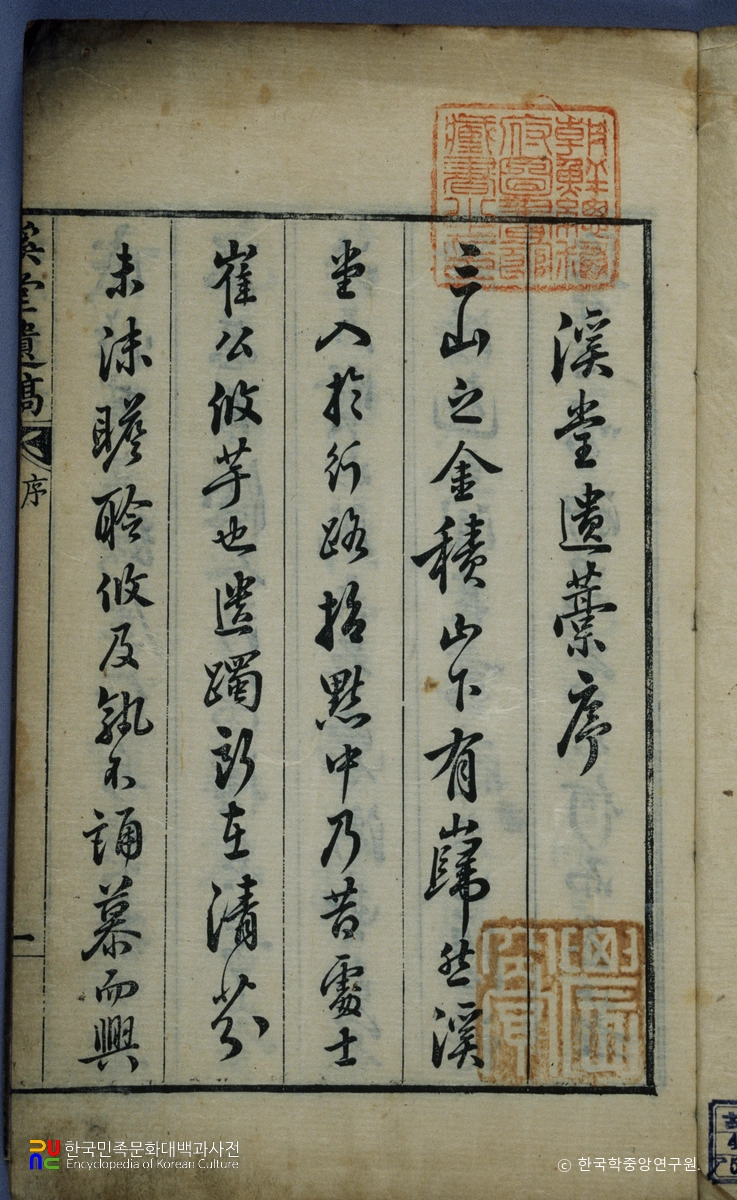 溪堂遺藁序
三山之金積山下有巋然溪
堂入於行路指點中乃昔處士
崔公攸芋也遺躅所在清芬
未沬瞻聆攸及孰不誦慕而興
溪堂遺稿
序
一
朝鮮總督
府圖書館
藏書之印
한국민족문화대백과사전
Encyclopedia of Korean Culture
© 한국학중앙연구원